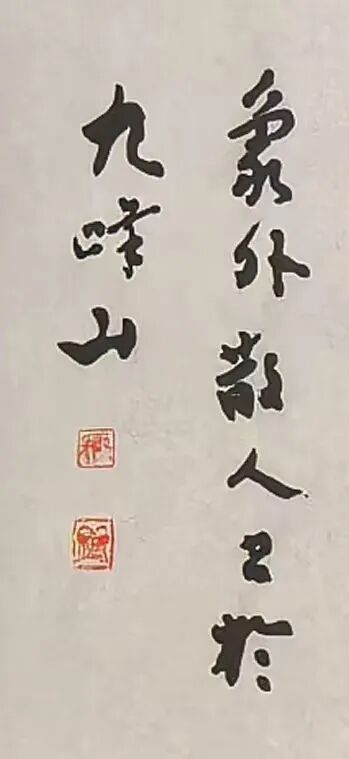 象外散人书於
九峰山